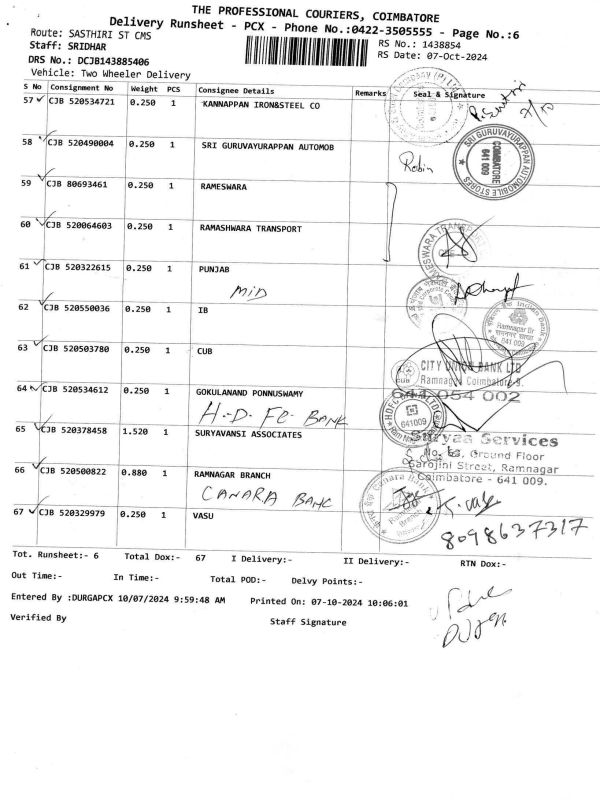 THE PROFESSIONAL COURIERS, COIMBATORE
Delivery Runsheet - PCX - Phone No.:0422-3505555 - Page No.:6
Route: SASTHIRI ST CMS
RS No.: 1438854
Staff: SRIDHAR
RS Date: 07-Oct-2024
DRS No.: DCJB143885406
Vehicle: Two Wheeler Delivery
S No Consignment No Weight PCS Consignee Details Remarks Seal & Signature
57 CJB 520534721 0.250 1 KANNAPPAN IRON&STEEL CO
58 CJB 520490004 0.250 1 SRI GURUVAYURAPPAN AUTOMOB
Robin
SRI GURUVAYURAPPAN AUTOMOBILE STORES
COIMBATORE
641 009
59 CJB 80693461 0.250 1 RAMESWARA
60 CJB 520064603 0.250 1 RAMASHWARA TRANSPORT
61 CJB 520322615 0.250 1 PUNJAB
MID
62 CJB 520550036 0.250 1 IB
Indian Bank
Ramnagar Br
641 009
63 CJB 520503780 0.250 1 CUB
CUB
CITY UNION BANK LTD
Ramnagar Coimbatore 9.
641 054 002
64 CJB 520534612 0.250 1 GOKULANAND PONNUSWAMY
H.D.Fc BANK
641009
65 CJB 520378458 1.520 1 SURYAVANSI ASSOCIATES
Suryaa Services
No. 63, Ground Floor
Sarojini Street, Ramnagar
Coimbatore - 641 009.
66 CJB 520500822 0.880 1 RAMNAGAR BRANCH
CANARA BANC
Canara Bank
67 CJB 520329979 0.250 1 VASU
8098637317
Tot. Runsheet:- 6 Total Dox:- 67 I Delivery:- II Delivery:- RTN Dox:-
Out Time:- In Time:- Total POD:- Delvy Points:-
Entered By :DURGAPCX 10/07/2024 9:59:48 AM Printed On: 07-10-2024 10:06:01
Verified By Staff Signature